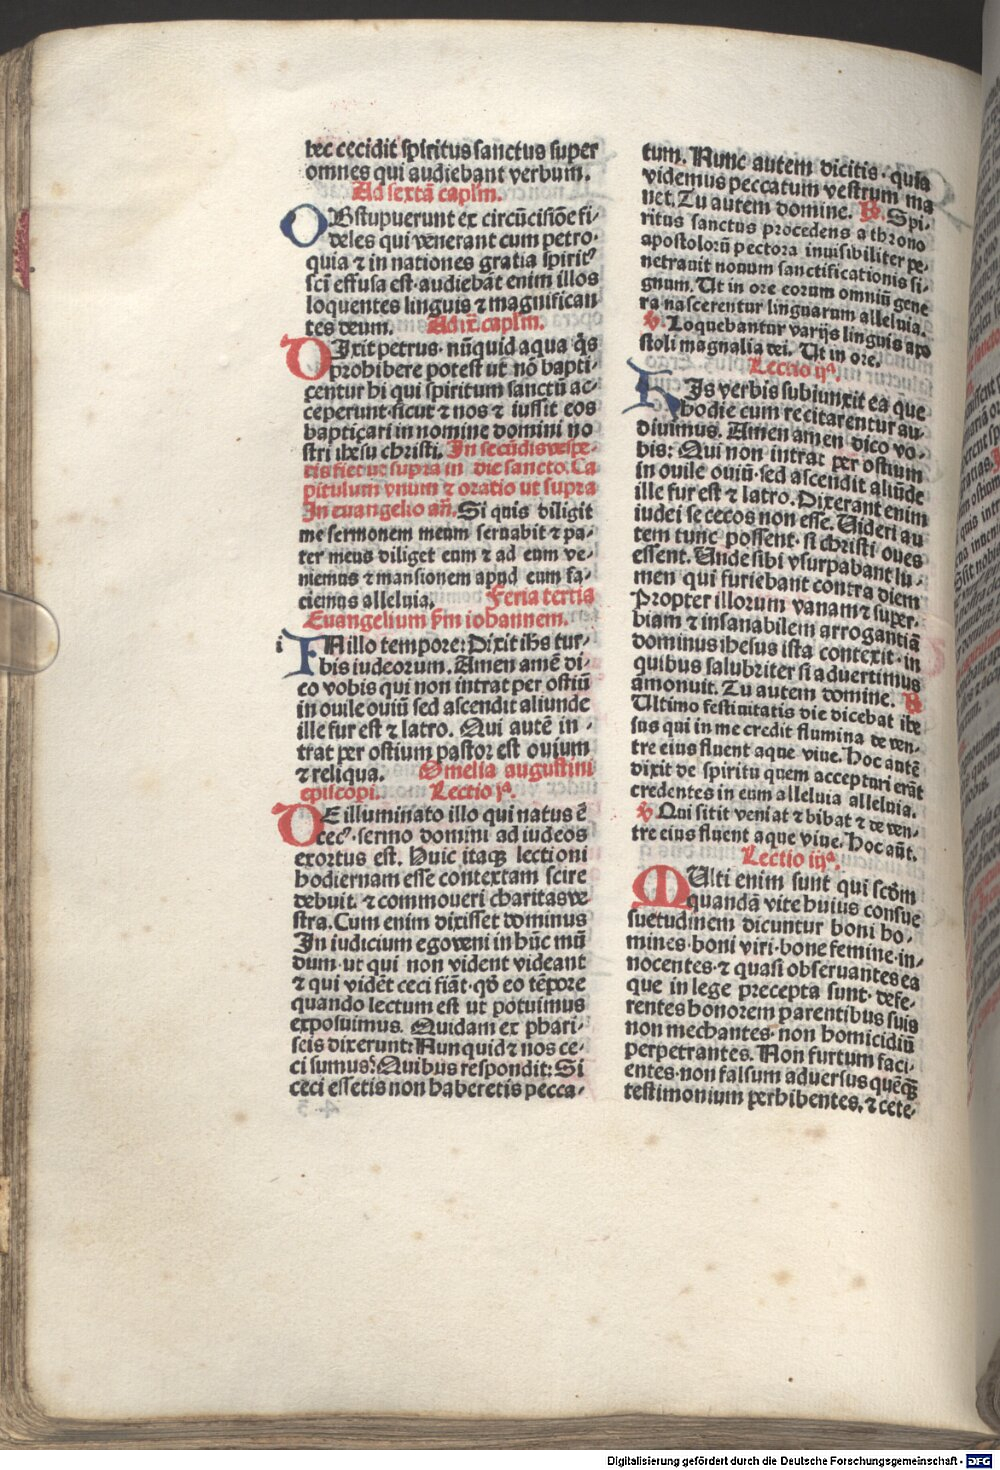 hec cecidit spiritus sanctus super
omnes qui audiebant verbum.
Ad sextā caplm.
OBstupuerunt ex circūcisiōe fi-
deles qui venerant cum petro·
quia ⁊ in nationes gratia spiritꝰ
scī effusa est·audiebāt enim illos
loquentes linguis ⁊ magnifican
tes deum. Ad ix̄ caplm.
DIxit petrus·nūquid aqua q̄s
prohibere potest ut nō bapti-
çentur hi qui spiritum sanctū ac-
ceperunt·sicut ⁊ nos ⁊ iussit eos
baptiçari in nomine domini no
stri ihesu christi. In secūdis vespe-
ris fiet ut supra in die sancto. Ca
pitulum vnum ⁊ oratio ut supra
In euangelio an̄. Si quis diligit
me sermonem meum seruabit ⁊ pa-
ter meus diliget eum ⁊ ad eum ve-
niemus ⁊ mansionem apud eum fa-
ciemus alleluia. Feria tertia
Euangelium s̄m iohannem.
i INillo tempore: Dixit ihs tur-
bis iudeorum. Amen amē di-
co vobis qui non intrat per ostiū
in ouile ouiū sed ascendit aliunde
ille fur est ⁊ latro. Qui autē in-
trat per ostium pastor est ouium
⁊ reliqua. Omelia augustini
episcopi. Lectio jᵃ.
DE illuminato illo qui natus ē
cecꝰ·sermo domini ad iudeos
exortus est. Huic itaqꝫ lectioni
hodiernam esse contextam scire
debuit·⁊ commoueri charitas ve
stra. Cum enim dixisset dominus
In iudicium ego veni in hūc mū
dum·ut qui non vident videant
⁊ qui vidēt ceci fiāt·qd̄ eo tēpore
quando lectum est ut potuimus
exposuimus. Quidam ex phari-
seis dixerunt: Nunquid ⁊ nos ce-
ci sumus? Quibus respondit: Si
ceci essetis non haberetis pecca-
tum. Nunc autem dicitis·quia
videmus peccatum vestrum ma
net. Tu autem domine. ℟. Spi-
ritus sanctus procedens a throno
apostolorū pectora inuisibiliter pe-
netrauit nouum sanctificationis si-
gnum. Ut in ore eorum omniū gene
ra nascerentur linguarum alleluia.
℣. Loquebantur varijs linguis apo
stoli magnalia dei. Ut in ore.
Lectio ijᵃ.
HIs verbis subiunxit ea que
hodie cum recitarentur au-
diuimus. Amen amen dico vo-
bis: Qui non intrat per ostium
in ouile ouiū·sed ascendit aliūde
ille fur est ⁊ latro. Dixerant enim
iudei se cecos non esse. Uideri au
tem tunc possent·si christi oues
essent. Unde sibi vsurpabant lu-
men qui furiebant contra diem
Propter illorum vanam ⁊ super-
biam ⁊ insanabilem arrogantiā
dominus ihesus ista contexit·in
quibus salubriter si aduertimus
āmonuit. Tu autem domine. ℟
Ultimo festiuitatis die dicebat ihe
sus qui in me credit flumina de ven-
tre eius fluent aque viue. Hoc autē
dixit de spiritu quem accepturi erāt
credentes in eum alleluia alleluia.
℣ Qui sitit veniat ⁊ bibat ⁊ de ven-
tre eius fluent aque viue. Hoc aūt.
Lectio iijᵃ.
MUlti enim sunt qui scd̄m
quandā vite huius consue
suetudinem dicuntur boni ho-
mines·boni viri·bone femine·in-
nocentes·⁊ quasi obseruantes ea
que in lege precepta sunt·defe-
rentes honorem parentibus suis
non mechantes·non homicidiū
perpetrantes. Non furtum faci-
entes·non falsum aduersus quēqꝫ
testimonium perhibentes, ⁊ cete-
Digitalisierung gefördert durch die Deutsche Forschungsgemeinschaft - DFG